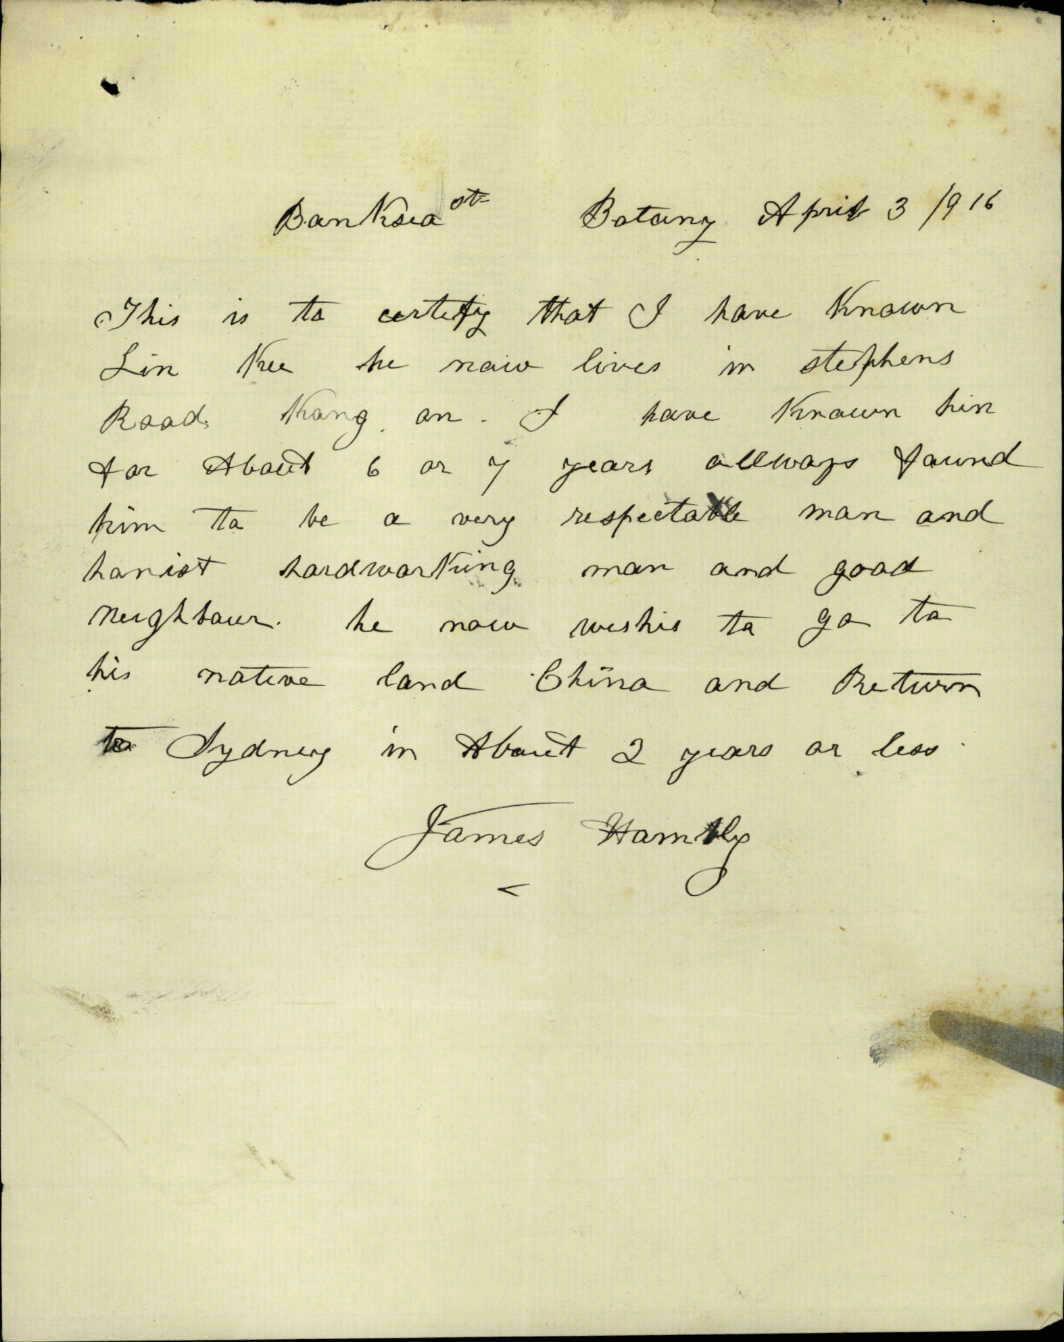 Banksia st Botany April 3 1916
This is to certify that I have Known
Lin Kee he now lives in stephens
Road. Kong on. I have Known him
for About 6 or 7 years allways found
him to be a very respectable man and
honist hardworking man and good
Neighbour. he now wishis to go to
his native land China and Return
to Sydney in About 2 years or less.
James Hambly